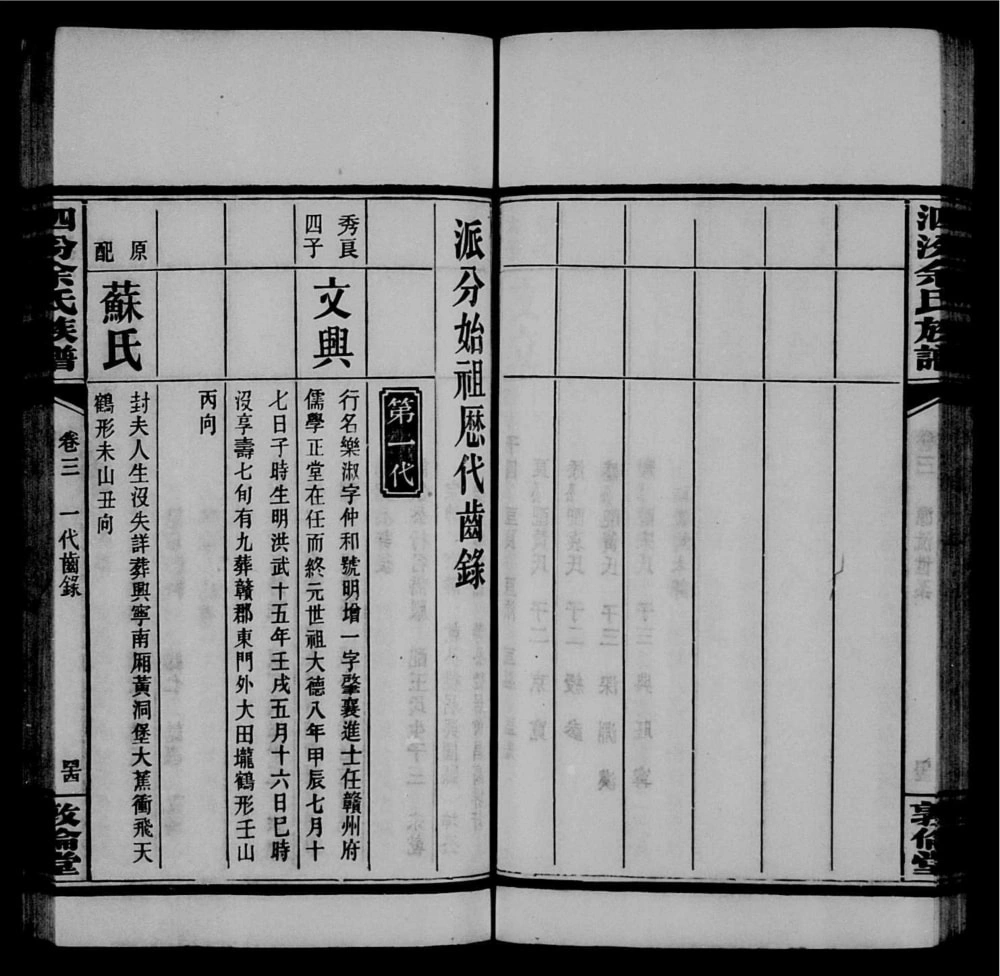 泗汾余氏族譜
敦倫堂
派分始祖厯代齒錄
第一代
秀良
四子
文興
行名樂淑字仲和號明增一字肇襄進士任贛州府
儒學正堂在任而終元世祖大德八年甲辰七月十
七日子時生明洪武十五年壬戌五月十六日巳時
沒享壽七旬有九葬贛郡東門外大田壠鶴形壬山
丙向
原
配
蘇氏
封夫人生沒失詳葬興寧南厢黃洞堡大蕉衝飛天
鶴形未山丑向
泗汾余氏族譜
卷三
一代齒錄
敦倫堂